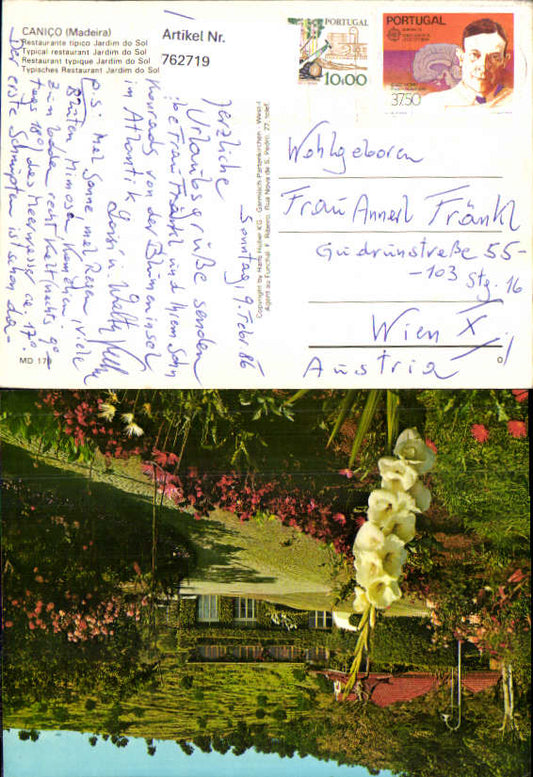 CANIÇO (Madeira)
Restaurante típico Jardim do Sol
Typical restaurant Jardim do Sol
Restaurant typique Jardim do Sol
Typisches Restaurant Jardim do Sol
Artikel Nr.
762719
PORTUGAL
10$00
PORTUGAL
37$50
Sonntag, 9. Febr 86
Herzliche
Urlaubsgrüße senden
liebe Frau Fränkl und Ihrem Sohn
Konrad von der Blumeninsel
im Atlantik
Walter
P.S. mal Sonne mal Regen, viele
Blüten Mimosen, Kamelien.
zum baden recht kalt nachts
tags 18° das Meerwasser ca 17°.
Der erste Schnupfen ist schon da-
Copyright by Huber KG - Garmisch-Partenkirchen
Agent au Funchal: F. Ribeiro, Rua Nova de S. Pedro, 27, telef.
Wohlgeboren
Frau Annerl Fränkl
Gudrunstraße 55-
-103 Stg. 16
Wien X
Austria
MD 179